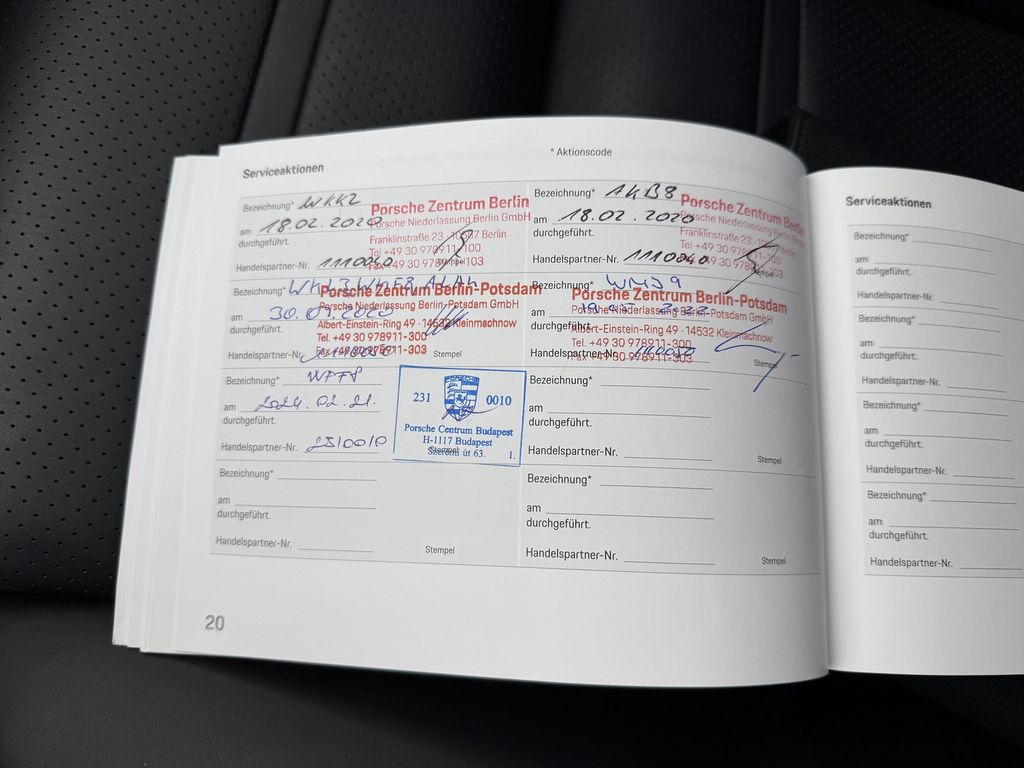 * Aktionscode
Serviceaktionen
Bezeichnung* WKK2
am 18.02.2020
durchgeführt.
Handelspartner-Nr. 1110040
Porsche Zentrum Berlin
Porsche Niederlassung Berlin GmbH
Franklinstraße 23 Berlin
Tel +49 30 978911-100
Fax +49 30 978911-103
Stempel
Bezeichnung* AKB8
am 18.02.2020
durchgeführt.
Handelspartner-Nr. 1110040
Porsche Zentrum
Porsche Niederlassung Berlin
Franklinstraße 23
Tel +49 30
Fax +49 30
Stempel
Bezeichnung*
am 2020
durchgeführt.
Handelspartner-Nr.
Porsche Zentrum Berlin-Potsdam
Porsche Niederlassung Berlin-Potsdam GmbH
Albert-Einstein-Ring 49 · 14532 Kleinmachnow
Tel. +49 30 978911-300
Fax +49 30 978911-303
Stempel
Bezeichnung* WMJ9
am
durchgeführt.
Handelspartner-Nr.
Porsche Zentrum Berlin-Potsdam
Porsche Niederlassung Berlin-Potsdam GmbH
Albert-Einstein-Ring 49 · 14532 Kleinmachnow
Tel. +49 30 978911-300
Fax +49 30 978911-303
Stempel
Bezeichnung*
am 2024.02.21.
durchgeführt.
Handelspartner-Nr. 2310010
PORSCHE
231 0010
Porsche Centrum Budapest
H-1117 Budapest
Szerémi út 63. 1.
Stempel
Bezeichnung*
am
durchgeführt.
Handelspartner-Nr.
Stempel
Bezeichnung*
am
durchgeführt.
Handelspartner-Nr.
Stempel
Bezeichnung*
am
durchgeführt.
Handelspartner-Nr.
Stempel
20
Serviceaktionen
Bezeichnung*
am
durchgeführt.
Handelspartner-Nr.
Bezeichnung*
am
durchgeführt.
Handelspartner-Nr.
Bezeichnung*
am
durchgeführt.
Handelspartner-Nr.
Bezeichnung*
am
durchgeführt.
Handelspartner-Nr.